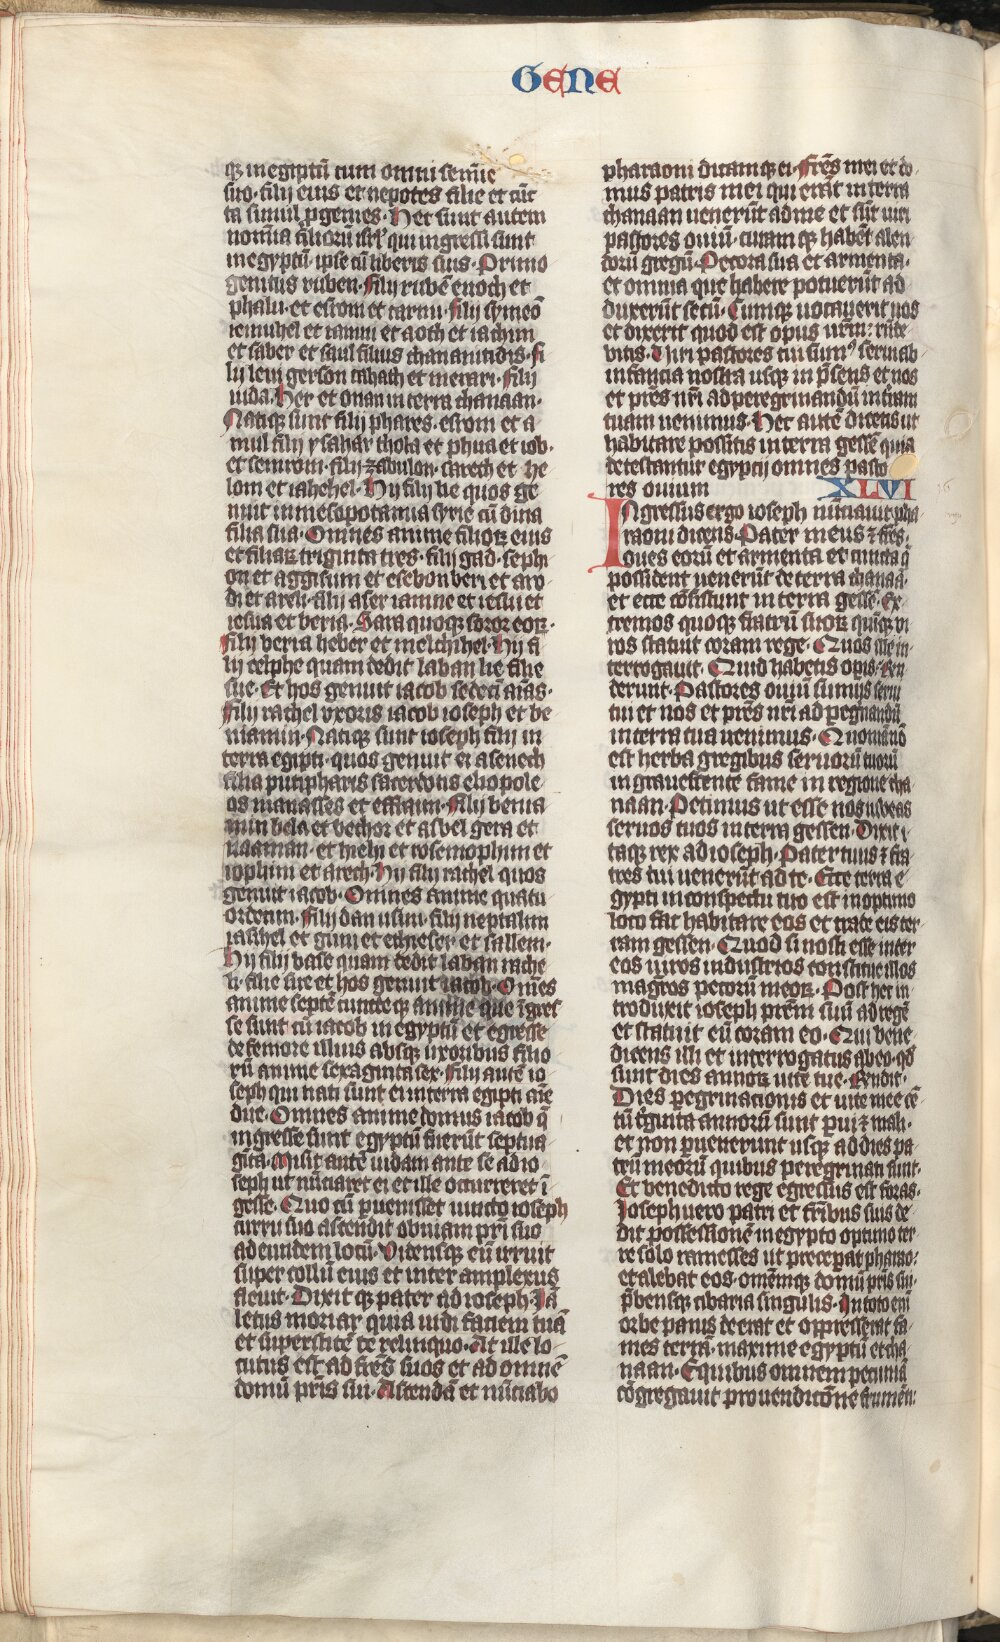 GENE
qꝫ in egiptū cum omni semīe
suo· filij eius et nepotes filie et cūc
ta simul ꝓgenies· Hec sunt autem
nomīa filioꝝ isrl' qui ingressi sunt
in egyptū· ipse cū liberis suis· Primo
genitus ruben· Filij rubē enoch et
phalu· et esrom et carmi· Filij symeō
iemuhel et iamin et aoth et iachin
et saher et saul filius chananitidis· Fi
lij leui gerson cahath et merari· Filij
iuda· Her et onan in terra chanaan·
Natiqꝫ sunt filij phares· esrom et a
mul filij ysahar thola et phua et iob·
et semrom· filij zabulon· sarech et he
lom et iahehel· Hij filij lie quos ge
nuit in mesopotamia syrie cū dina
filia sua· Omnes anime filioꝝ eius
et filiaꝝ triginta tres· filij gad· sephi
on et aggi suni et esebon heri et aro
di et areli· filij aser iamne et iesui et
iesua et beria· Sara quoqꝫ soror eoꝝ·
Filij beria heber et melchihel· Hij fi
lij celphe quam dedit laban lie filie
sue· Et hos genuit iacob sedecī aīas·
Filij rachel vxoris iacob ioseph et be
niamin· Natiqꝫ sunt ioseph filij in
terra egipti· quos genuit ei asenech
filia putipharis sacerdotis eliopole
os manasses et effraim· Filij benia
min bela et bechor et asbel gera et
naaman· et hely et rosemophim et
iophim et arech· Hij filij rachel quos
genuit iacob· Omnes anime quatu
ordecim· Filij dan usim· filij neptalim
iasihel et guni et ethieser et sallem·
Hij filij bale quam dedit laban rache
li· filie sue et hos genuit iacob· Omēs
anime septē cuncteqꝫ anime que īgres
se sunt cū iacob in egyptū et egresse
de femore illius absqꝫ uxoribus filio
rū anime sexaginta sex· Filij autē io
seph qui nati sunt ei in terra egipti aīe
due· Omnes anime domus iacob q̄
ingresse sunt egyptū fuerūt septua
gīta· Misit autē iudam ante se ad io
seph ut nūciaret ei et ille occurreret ī
gesse· Quo cū ꝑuenisset iuncto ioseph
curru suo ascendit obuiam pr̄i suo
ad eundem locū· Vidensqꝫ eū irruit
super collū eius et inter amplexus
fleuit· Dixit qꝫ pater ad ioseph· Iā
letus moriar quia uidi faciem tuā
et superstitē te relinquo· At ille lo
cutus est ad fr̄es suos et ad omnē
domū pr̄is sui· Ascendā et nūciabo
pharaoni dicam qꝫ ei· Fr̄es mei et do
mus patris mei qui erāt in terra
chanaan uenerūt ad me et sūt uiri
pastores ouiū· curam qꝫ habēt alen
dorū gregū· Pecora sua et armenta·
et omnia que habere potuerūt ad
duxerūt secū· Cumqꝫ uocauerit uos
et dixerit quod est opus ur̄m: rn̄de
bitis· Viri pastores tui sumꝰ serui ab
infancia nostra usqꝫ in p̄sens et nos
et pr̄es nr̄i ad peregrinandū in terram
tuam uenimus· Hec autē dicetis ut
habitare possitis in terra gessē quia
detestantur egyptij omnes pasto
res ouium XLVI
Ingressus ergo ioseph nūciauit pha
raoni dicens· Pater meus ⁊ fr̄es·
oues eorū et armenta et cuncta q̄
possident uenerūt de terra chanaā·
et ecce cōsistunt in terra gessē· Ex
tremos quoqꝫ fratrū suoꝝ quīqꝫ vi
ros statuit coram rege· Quos ille in
terrogauit· Quid habetis opis· Rn̄
derunt· Pastores ouiū sumꝰ serui
tui et nos et pr̄es nr̄i ad peg̓nandū
in terra tua uenimus· Quoniā nō
est herba gregibus seruorū tuorū
ingrauescente fame in regione cha
naan· Petimus ut esse nos iubeas
seruos tuos in terra gessen· Dixit i
taqꝫ rex ad ioseph· Pater tuus ⁊ fra
tres tui uenerūt ad te· Ecce terra e
gypti in conspectu tuo est in optimo
loco fac habitare eos et trade eis ter
ram gessen· Quod si nosti esse inter
eos uiros industrios constitue illos
magros pecorū meoꝝ· Post hec in
troduxit ioseph prēm suū ad regē
et statuit eū coram eo· Qui bene
dicens illi et interrogatus ab eo· qd̄
sunt dies annoꝝ uite tue· Rn̄dit·
Dies peregrinacionis et uite mee cē
tū tginta annorū sunt pui ⁊ mali·
et non ꝑuenerunt usqꝫ ad dies pa
trū meorū quibus peregrinati sunt·
Et benedicto rege egressus est foras·
Ioseph uero patri et fr̄ibus suis de
dit possessionē in egypto optimo ter
re solo ramesses ut precepat pharao:
et alebat eos· omēmqꝫ domū pr̄is sui·
p̄bensqꝫ cibaria singulis· In toto enī
orbe panis deerat et oppresserat fa
mes terrā· maxime egyptū et cha
naan· E quibus omnem pecuniā
cōgregauit pro uendicōne frumēti: